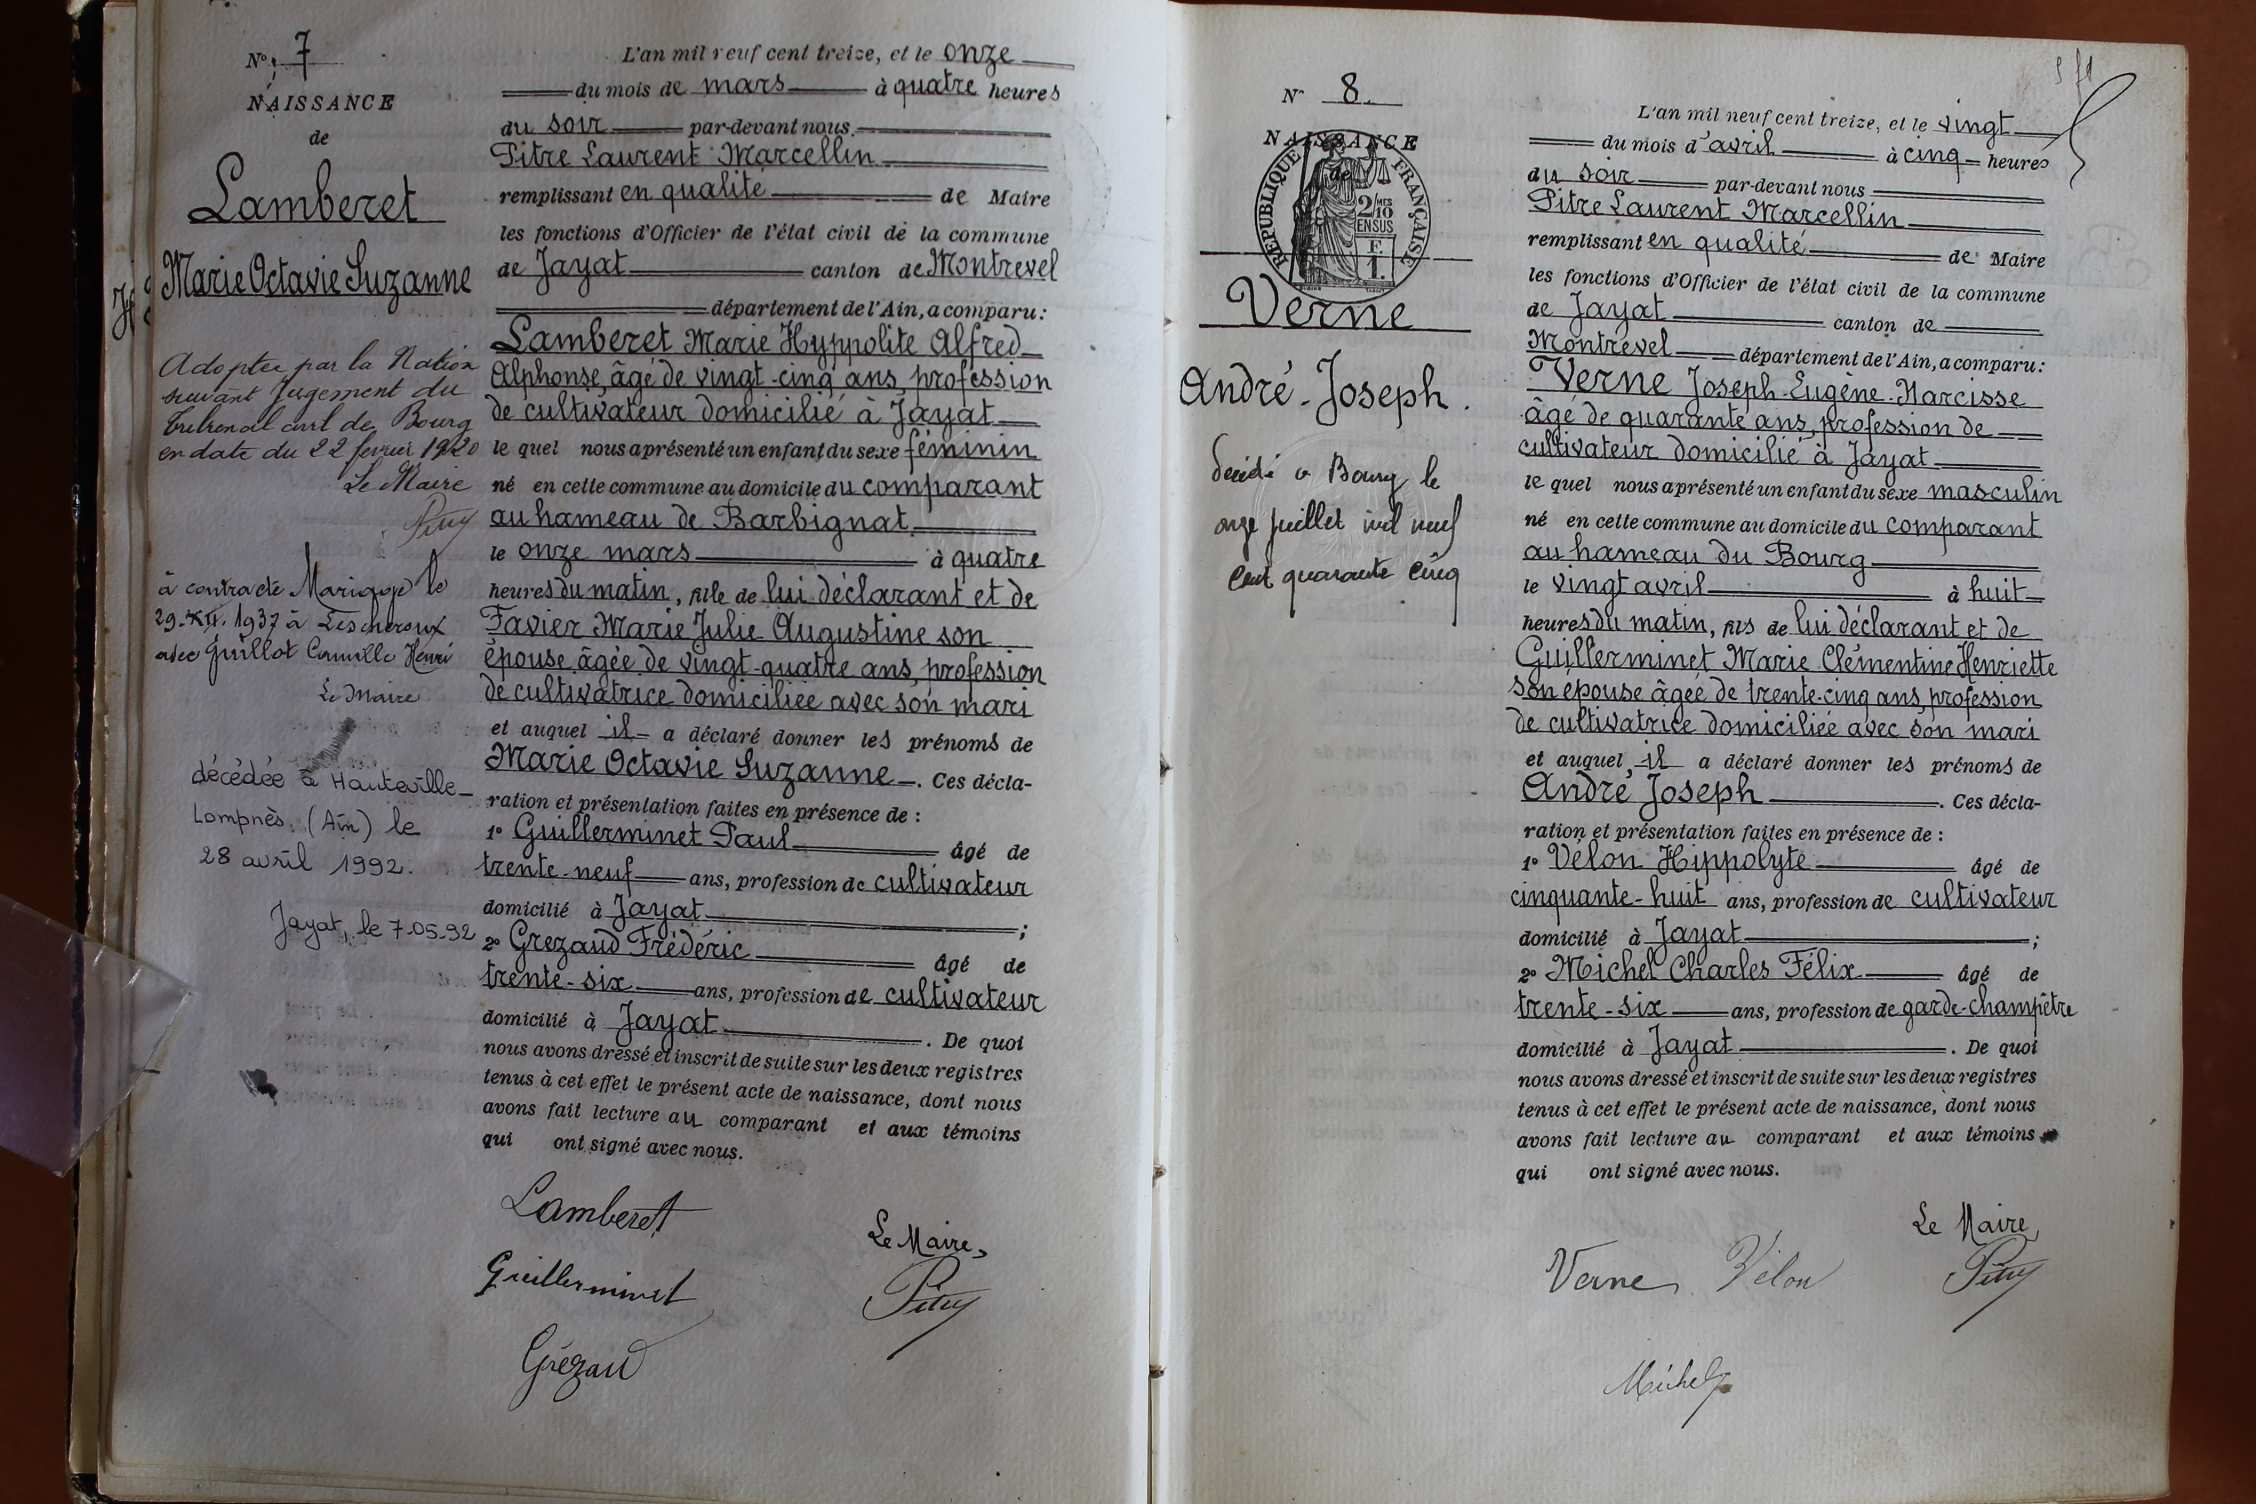 N° 7
NAISSANCE
de
Lamberet
Marie Octavie Suzanne
Adoptée par la Nation
suivant jugement du
tribunal civil de Bourg
en date du 22 fevrier 1920
Le Maire
Pitre
à contracté Mariage le
29.XII.1937 à Lescheroux
avec Guillot Camille Henri
Le Maire
décédée à Hauteville-
Lompnès. (Ain) le
28 avril 1992.
Jayat, le 7-05-92
L'an mil neuf cent treize, et le onze
du mois de mars à quatre heures
du soir par-devant nous
Pitre Laurent Marcellin
remplissant en qualité de Maire
les fonctions d'Officier de l'état civil de la commune
de Jayat canton de Montrevel
département de l'Ain, a comparu:
Lamberet Marie Hyppolite Alfred
Alphonse, âgé de vingt-cinq ans, profession
de cultivateur domicilié à Jayat
le quel nous a présenté un enfant du sexe féminin
né en cette commune au domicile du comparant
au hameau de Barbignat
le onze mars à quatre
heures du matin, fille de lui déclarant et de
Favier Marie Julie Augustine son
épouse âgée de vingt-quatre ans, profession
de cultivatrice domiciliée avec son mari
et auquel il a déclaré donner les prénoms de
Marie Octavie Suzanne. Ces décla-
ration et présentation faites en présence de :
1° Guillerminet Paul âgé de
trente-neuf ans, profession de cultivateur
domicilié à Jayat ;
2° Grezaud Frédéric âgé de
trente-six ans, profession de cultivateur
domicilié à Jayat. De quoi
nous avons dressé et inscrit de suite sur les deux registres
tenus à cet effet le présent acte de naissance, dont nous
avons fait lecture au comparant et aux témoins
qui ont signé avec nous.
Lamberet
Le Maire,
Guillerminet
Pitre
Grézaud
N° 8.
NAISSANCE
de
REPUBLIQUE FRANÇAISE
2/10 MES
EN SUS
F.
1.
Verne
André-Joseph.
Décédé à Bourg le
onze juillet mil neuf
cent quarante cinq
571
L'an mil neuf cent treize, et le vingt
du mois d'avril à cinq heures
du soir par-devant nous
Pitre Laurent Marcellin
remplissant en qualité de Maire
les fonctions d'Officier de l'état civil de la commune
de Jayat canton de
Montrevel département de l'Ain, a comparu:
Verne Joseph-Eugène-Narcisse
âgé de quarante ans, profession de
cultivateur domicilié à Jayat
le quel nous a présenté un enfant du sexe masculin
né en cette commune au domicile du comparant
au hameau du Bourg
le vingt avril à huit
heures du matin, fils de lui déclarant et de
Guillerminet Marie Clémentine Henriette
son épouse âgée de trente-cinq ans, profession
de cultivatrice domiciliée avec son mari
et auquel il a déclaré donner les prénoms de
André Joseph. Ces décla-
ration et présentation faites en présence de :
1° Vélon Hippolyte âgé de
cinquante-huit ans, profession de cultivateur
domicilié à Jayat ;
2° Michel Charles Félix âgé de
trente-six ans, profession de garde-champêtre
domicilié à Jayat. De quoi
nous avons dressé et inscrit de suite sur les deux registres
tenus à cet effet le présent acte de naissance, dont nous
avons fait lecture au comparant et aux témoins
qui ont signé avec nous.
Le Maire,
Verne Vélon Pitre
Michel